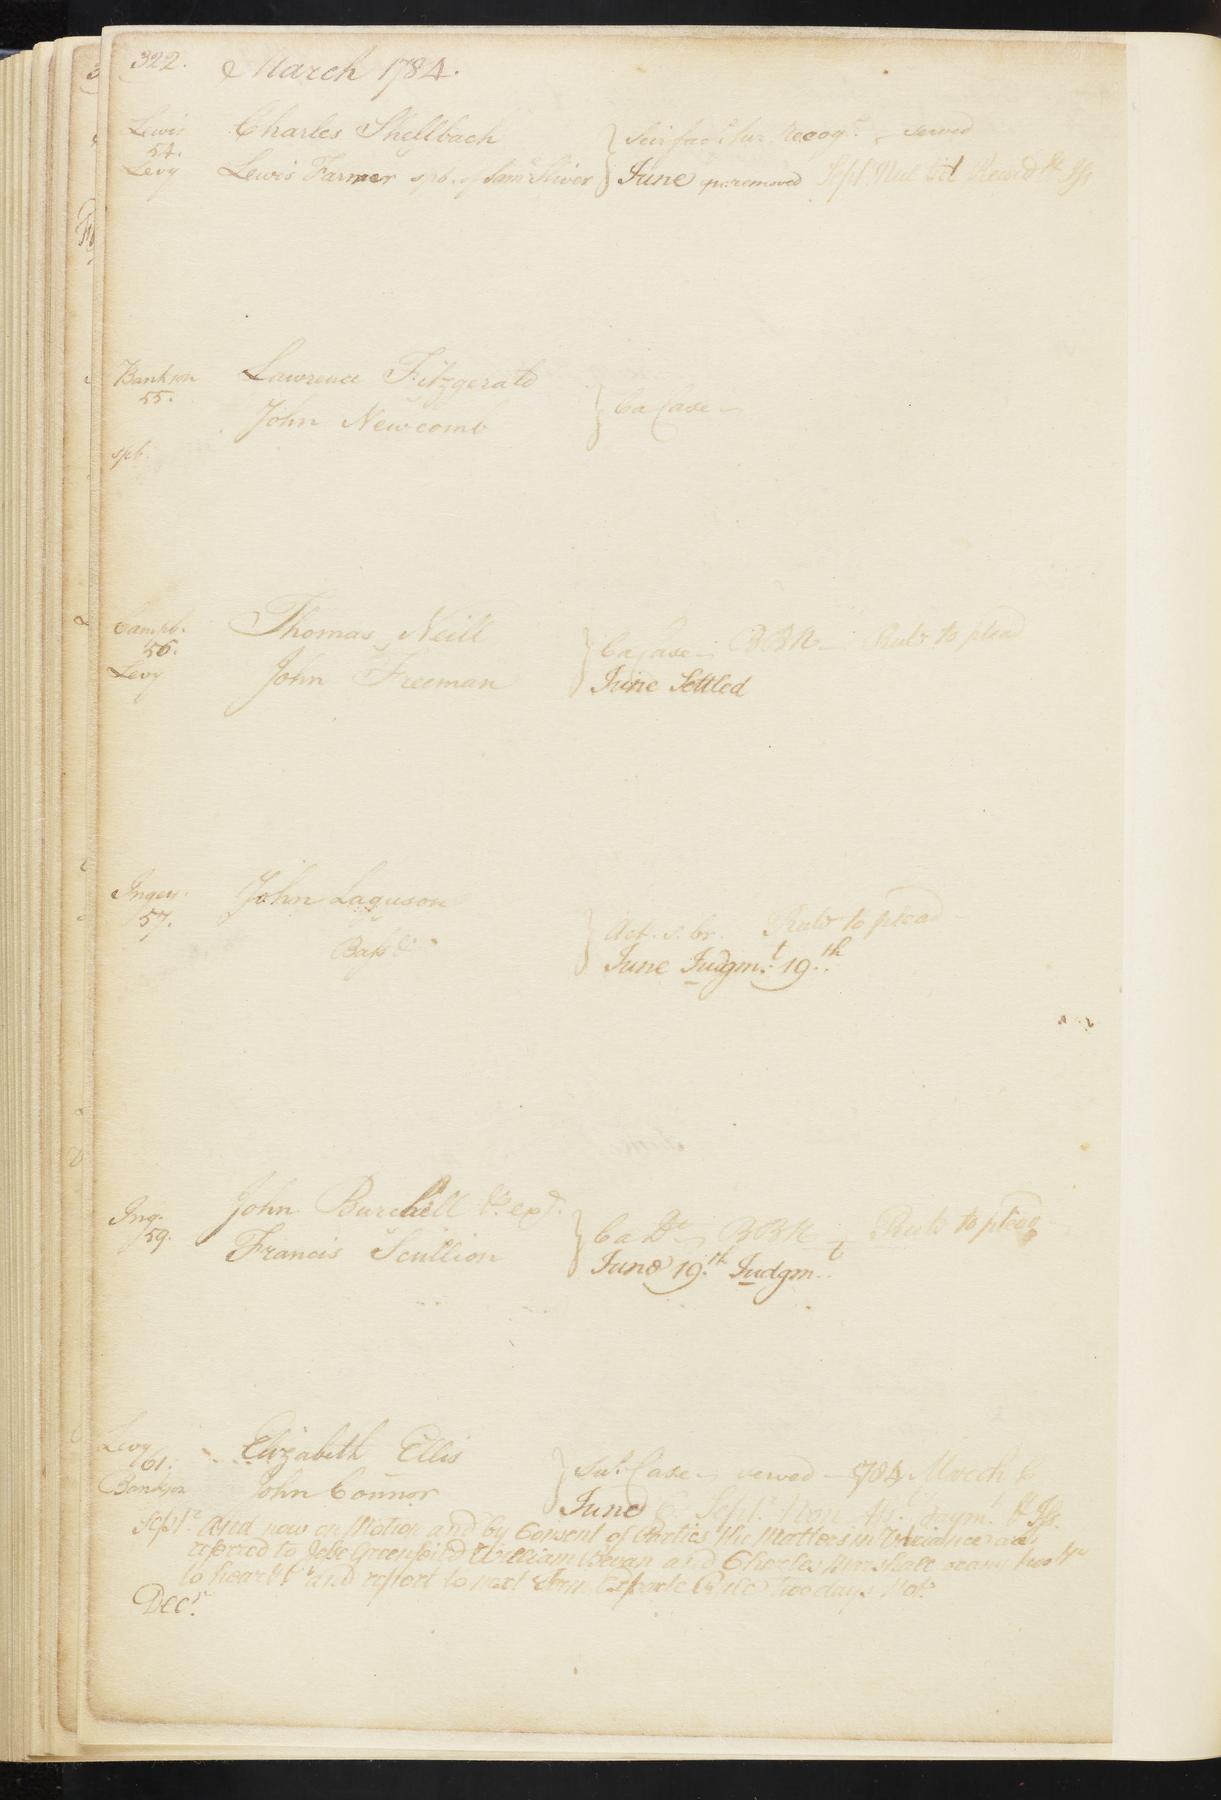 322. March 1784.
Lewis Charles Shellbach Scir fac. sur Recogce served
54.
Levy Lewis Farmer spb. of Saml Shiver June removed Sept. Nul tiel Record & Iss
Bankson Lawrence Fitzgerald
55. Ca Case
John Newcomb
spb.
Campb. Thomas Neill
56. Ca Case BBR Rule to plead
Levy John Freeman June Settled
Inger. John Laguson
57. Act. s. br. Rule to plead
June Judgmt. 19th
John Burchell &c. exr.
Ing. 59. Ca Dt BBR Rule to plead
Francis Scullion June 19th Judgmt.
Levy Elizabeth Ellis
61. Sus. Case served 784 March
Bankson John Connor June Septr Non Ass. paymt. & Iss.
Septr. And now on Motion and by Consent of Parties the Matters in Variance are
referred to Jesse Greenfield William Bevan and Charles Marshall or any two &c
to hear &c and report to next Term Exparte Rule two days Not.
Decr.